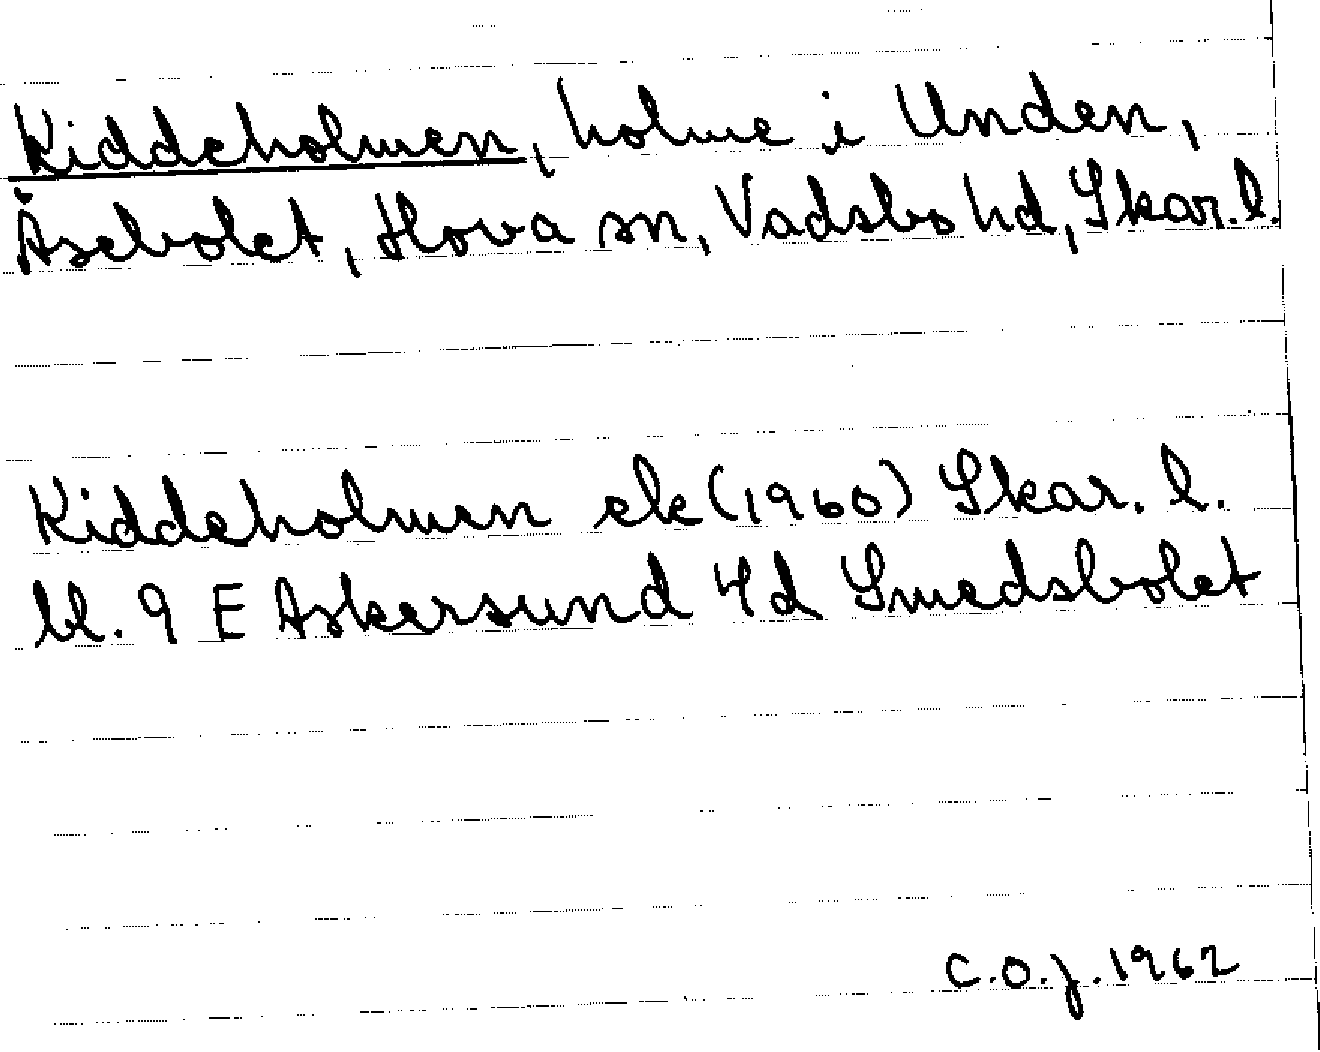 Kiddeholmen, holme i Unden,
Åsebolet, Hova sn, Vadsbo hd, Skar. l.
Kiddeholmen ek (1960) Skar. l.
bl. 9 E Askersund 4d Smedsbolet
C.O.J. 1962